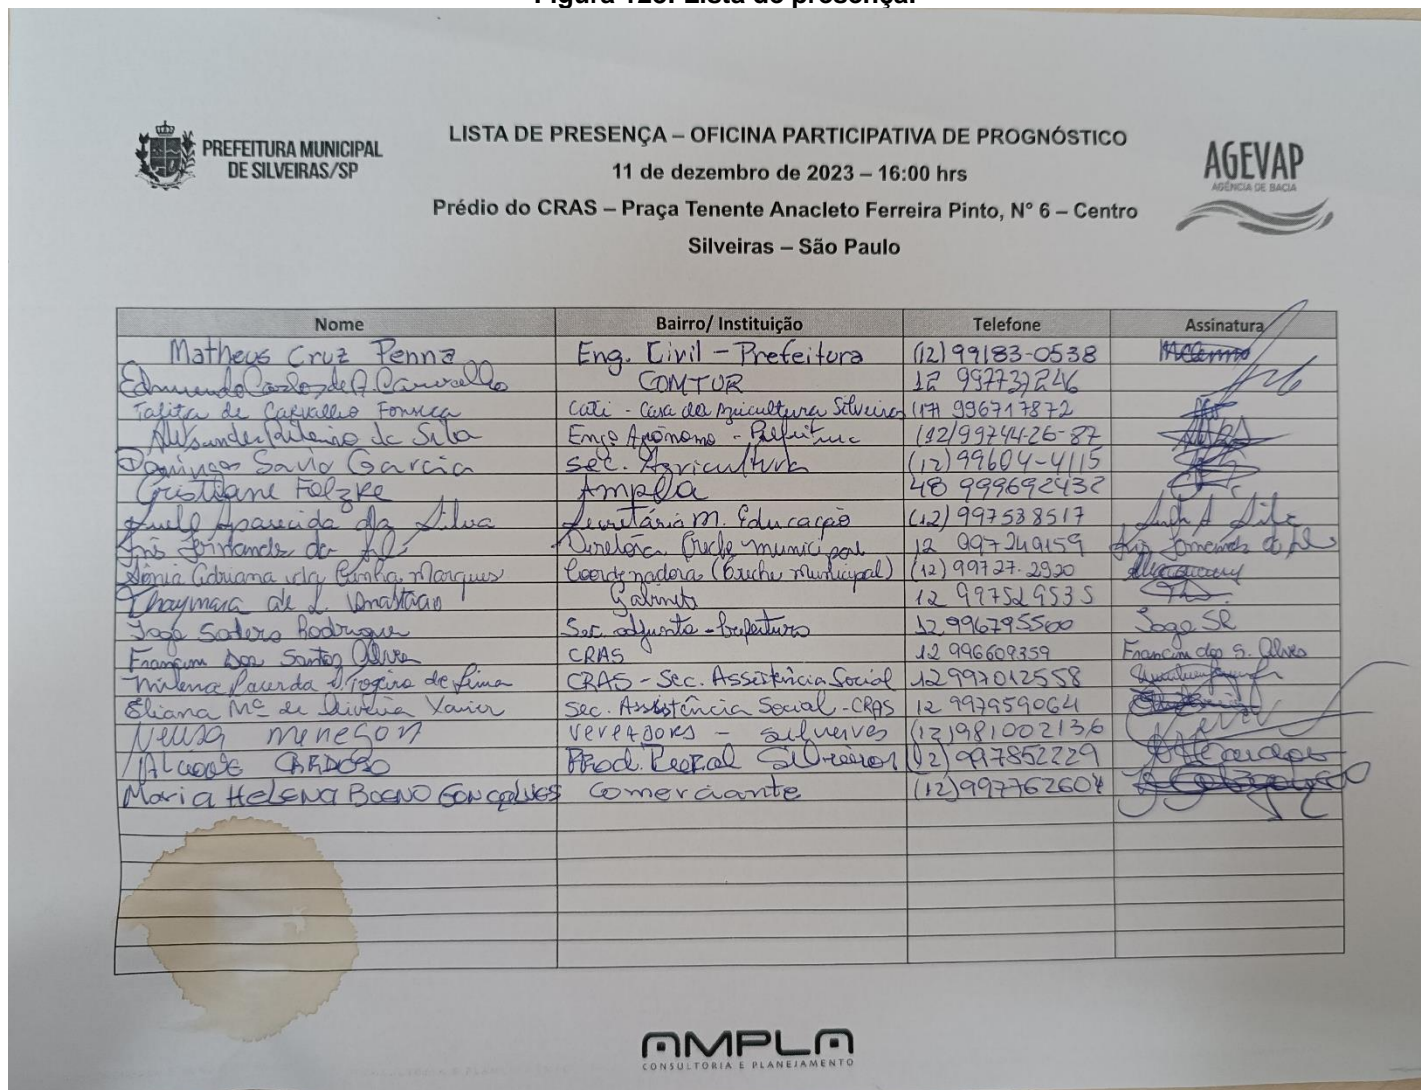 Figura 123. Lista de presença.
PREFEITURA MUNICIPAL
DE SILVEIRAS/SP
LISTA DE PRESENÇA – OFICINA PARTICIPATIVA DE PROGNÓSTICO
11 de dezembro de 2023 – 16:00 hrs
Prédio do CRAS – Praça Tenente Anacleto Ferreira Pinto, N° 6 – Centro
Silveiras – São Paulo
AGEVAP
AGÊNCIA DE BACIA
Nome Bairro/ Instituição Telefone Assinatura
Matheus Cruz Penna Eng. Civil – Prefeitura (12) 99183-0538
Edmundo Carlos de A. Carvalho COMTUR 12 997737246
Talita de Carvalho Fonseca Cati - Casa da Agricultura Silveiras (17) 996717872
Alexsander Ribeiro da Silva Engº Agrônomo - Prefeitura (12) 99744-26-87
Domingos Savio Garcia Sec. Agricultura (12) 99604-4115
Cristiane Felzke Ampla 48 999692432
Aparecida da Silva Secretária M. Educação (12) 997538517
Diretora Creche municipal 12 997249159
Sônia Adriana da Cunha Marques Coordenadora (Creche Municipal) (12) 99727-2920
Thaymara de L. Gabinete 12 997529535
Rodrigues Sec. adjunta - Prefeitura 12 996795500
Dos Santos Alves CRAS 12 996609359 dos S. Alves
Milena de Lima CRAS - Sec. Assistência Social 12 997012558
Eliana Mª de Oliveira Xavier Sec. Assistência Social - CRAS 12 997959064
Neusa menegon (12) 981002136
CARDOSO (12) 997852229
Maria HELENA BOENO GONÇALVES comerciante (12) 997762604
AMPLA
CONSULTORIA E PLANEJAMENTO